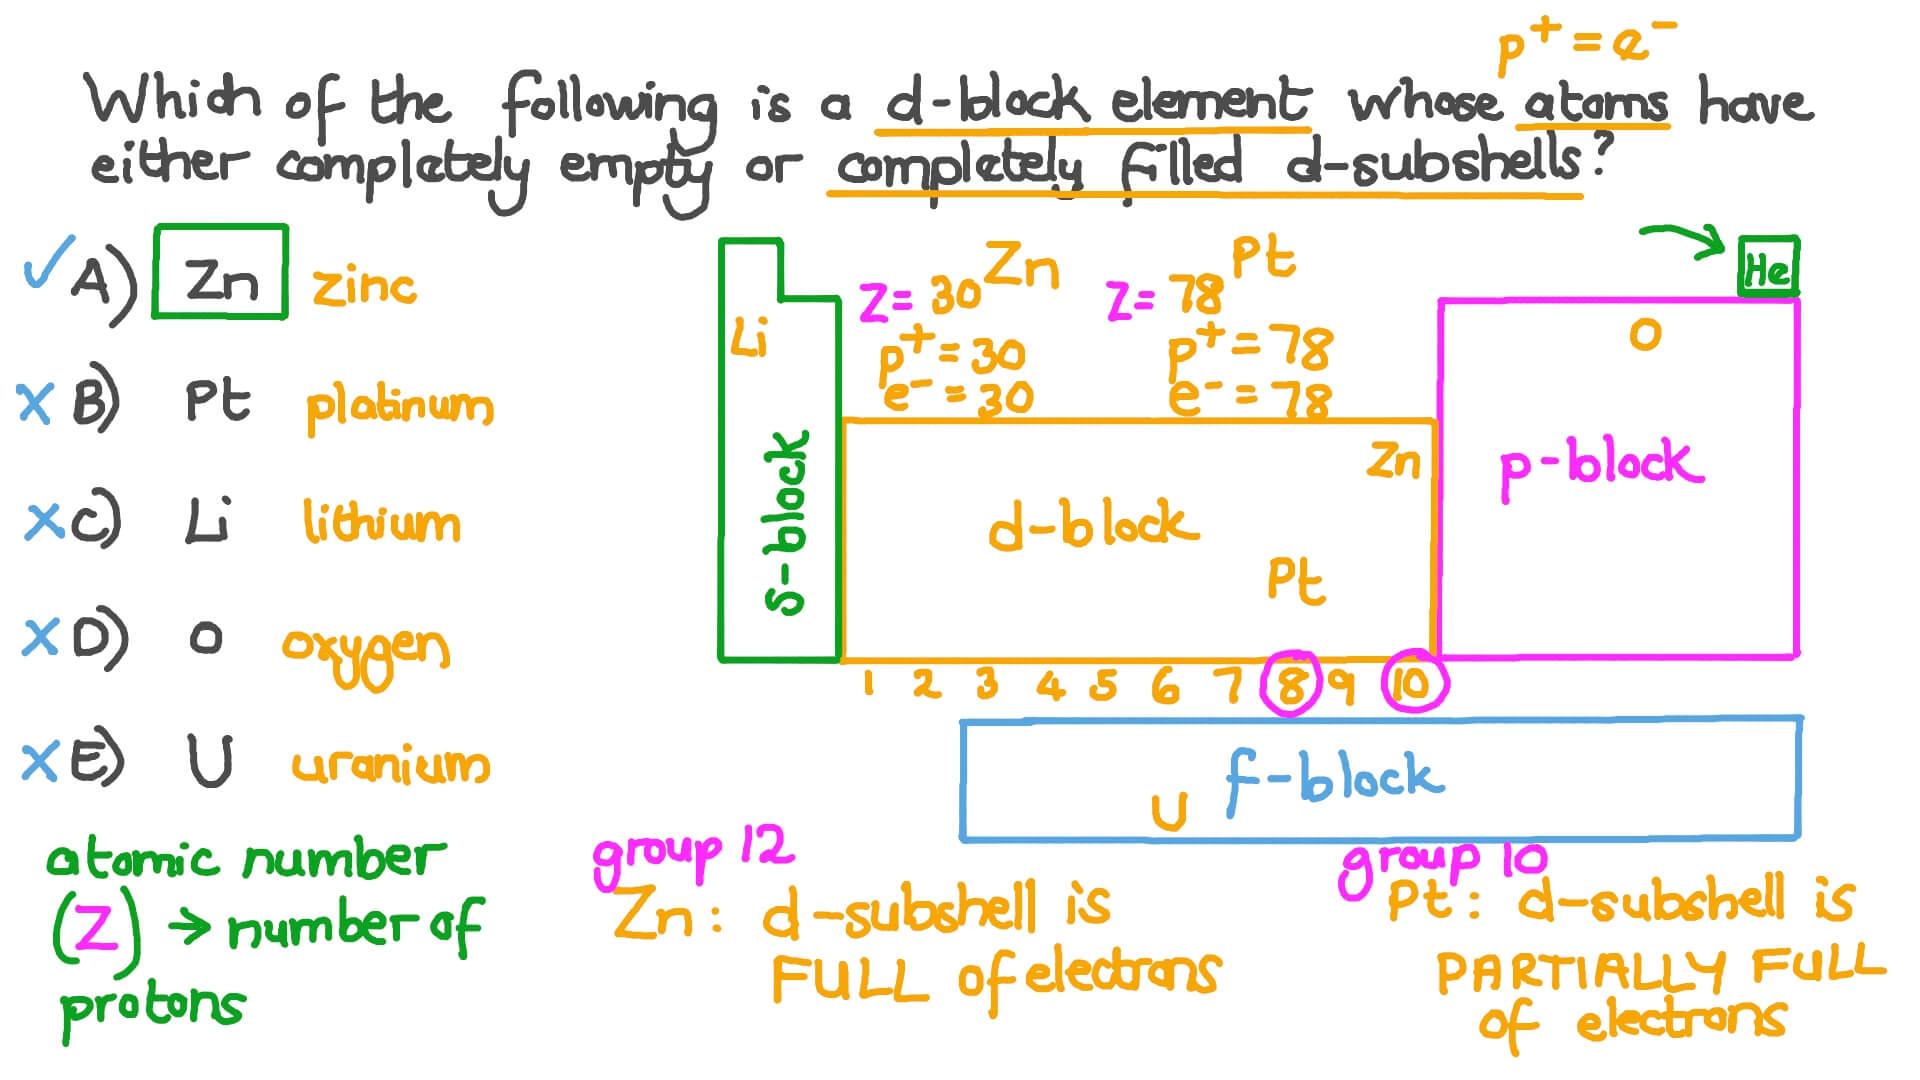 p⁺ = e⁻
Which of the following is a d-block element whose atoms have
either completely empty or completely filled d-subshells?
A) Zn zinc
B) Pt platinum
C) Li lithium
D) O oxygen
E) U uranium
atomic number
(Z) → number of
protons
s-block
Li
Zn
Z= 30
p⁺ = 30
e⁻ = 30
Pt
Z= 78
p⁺ = 78
e⁻ = 78
He
O
p-block
d-block
Zn
Pt
1 2 3 4 5 6 7 8 9 10
f-block
U
group 12
Zn: d-subshell is
FULL of electrons
group 10
Pt: d-subshell is
PARTIALLY FULL
of electrons